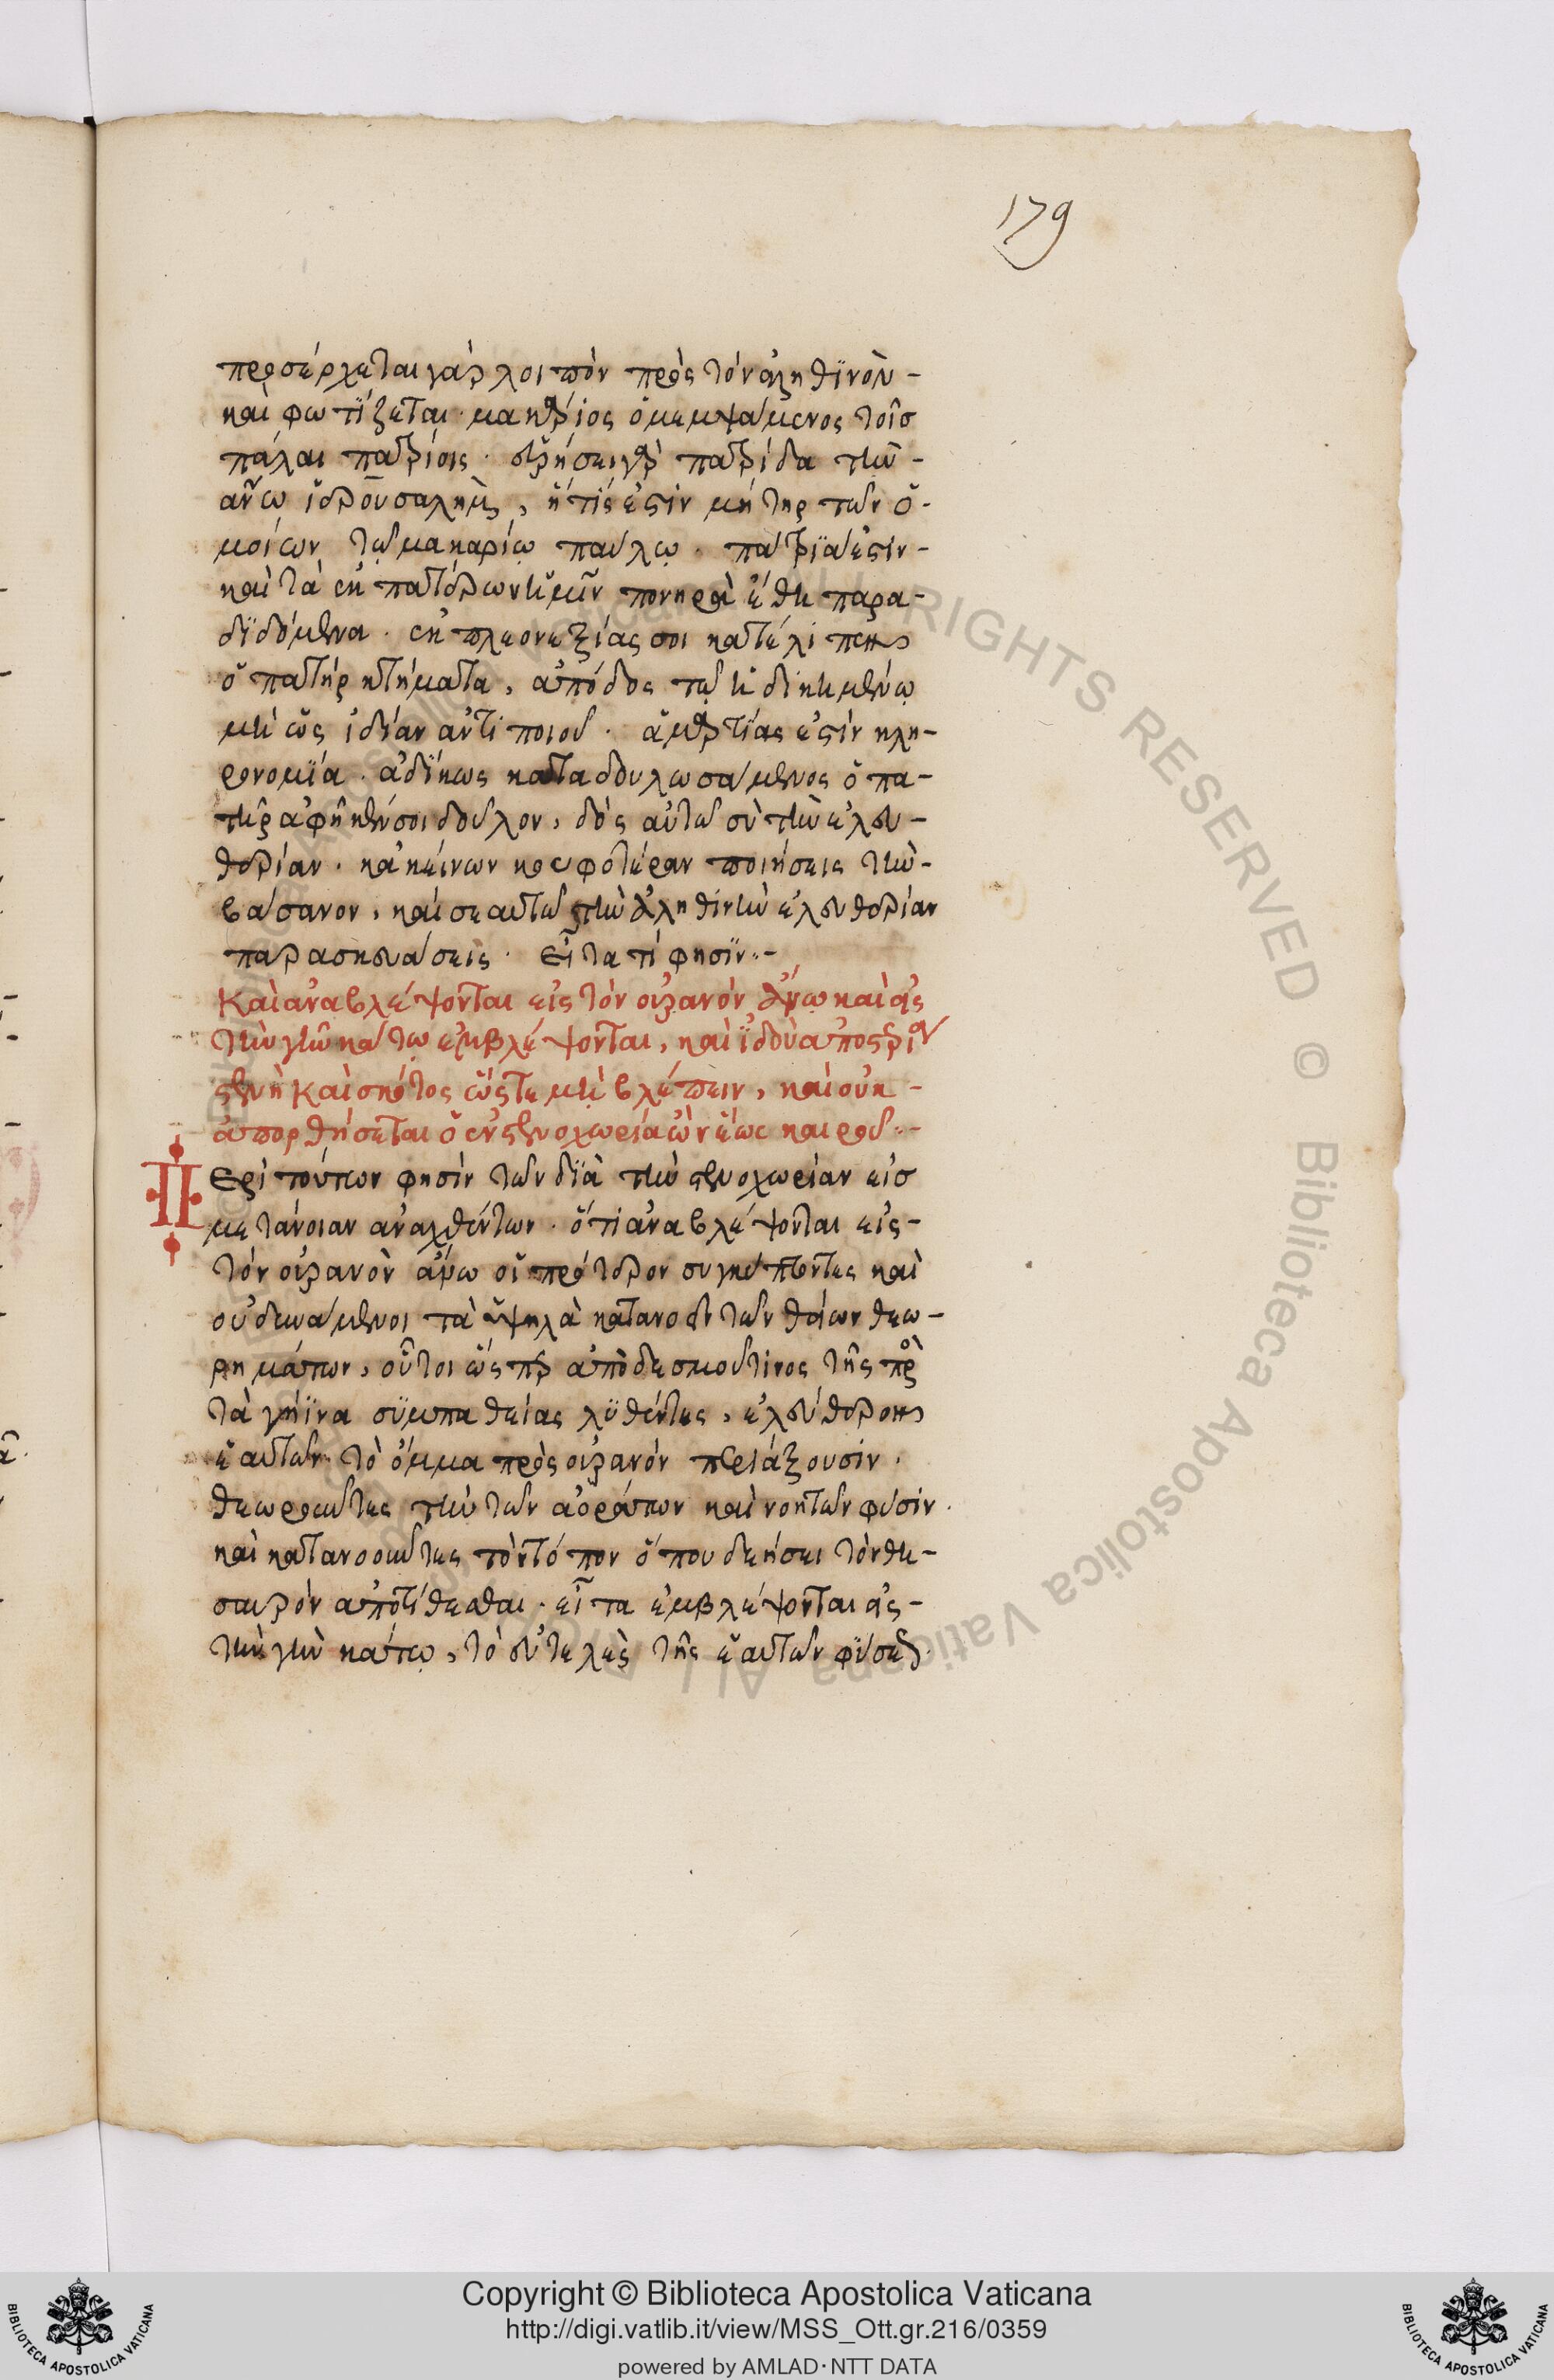 179
προσέρχεται γάρ λοιπόν πρὸς τόν ἀληθϊνὸν -
καὶ φωτίζεται · μακάριος ὁ μεμψάμενος τοῖσ
πάλαι πατρίοις · εὑρήσει γὰρ πατρίδα τὴν -
ἄνω ϊερουσαλὴμ, ἥτις ἐστὶν μήτηρ τῶν ὁ -
μοίων τῷ μακαρίῳ παύλῳ · πάτρϊα ἐστὶν -
καὶ τὰ ἐκ πατέρων ἡμῖν πονηρὰ ἔθη παρα -
δϊδόμενα · ἐκ πλεονεξίας σοι κατέλιπεν
ὁ πατήρ κτήματα, ἀπόδος τῷ ἠδικημένῳ
μὴ ὡς ἰδίαν ἀντιποιοῦ · ἁμαρτίας ἐστὶν κλη -
ρονομϊα · ἀδίκως καταδουλωσάμενος ὁ πα -
τὴρ ἀφῆκέν σοι δοῦλον, δὸς αὐτῶ σὺ τὴν ἐλευ -
θερίαν · κἀκείνων κουφοτέραν ποιήσεις τὴν -
βάσανον, καὶ σεαυτῶ τὴν ἀληθινὴν ἐλευθερίαν
παρασκευάσεις · Εἶτα τί φησϊν ·-
Καὶ ἀναβλέψονται εἰς τόν οὐρανόν ἄνω καὶ εἰς
τὴν γῆν κάτω ἐμβλέψονται, καὶ ϊδοὺ ἀπορία
στενὴ καὶ σκότος ὥστε μὴ βλέπειν, καὶ οὐκ -
ἀπορηθήσεται ὁ ἐν στενοχωρία ὢν ἕως καιροῦ ·-
Περὶ τούτων φησὶν τῶν δϊὰ τὴν στενοχωρίαν εἰσ
μετάνοιαν ἀναχθέντων · ὅτι ἀναβλέψονται εἰς -
τόν οὐρανὸν ἄνω οἱ πρότερον συγκύπτοντες καὶ
οὐ δυνάμενοι τὰ ὑψηλὰ κατανοεῖν τῶν θείων θεω -
ρημάτων, οὗτοι ὥσπερ ἀπὸ δεσμοῦ τινος τῆς πρὸς
τὰ γήϊνα συμπαθείας λϋθέντες, ἐλεύθερον
ἑαυτῶν τὸ ὄμμα πρὸς οὐρανόν περιάξουσιν ·
θεωροῦντες τὴν τῶν ἀοράτων καὶ νοητῶν φύσιν ·
καὶ κατανοοῦντες τὸν τόπον ὅπου δεήσει τὸν θη -
σαυρόν ἀποτίθεσθαι · εἶτα ἐμβλέψονται εἰς -
τὴν γῆν κάτω, τὸ εὐτελὲς τῆς ἑαυτῶν φύσεως ·
Copyright © Biblioteca Apostolica Vaticana
http://digi.vatlib.it/view/MSS_Ott.gr.216/0359
powered by AMLAD·NTT DATA